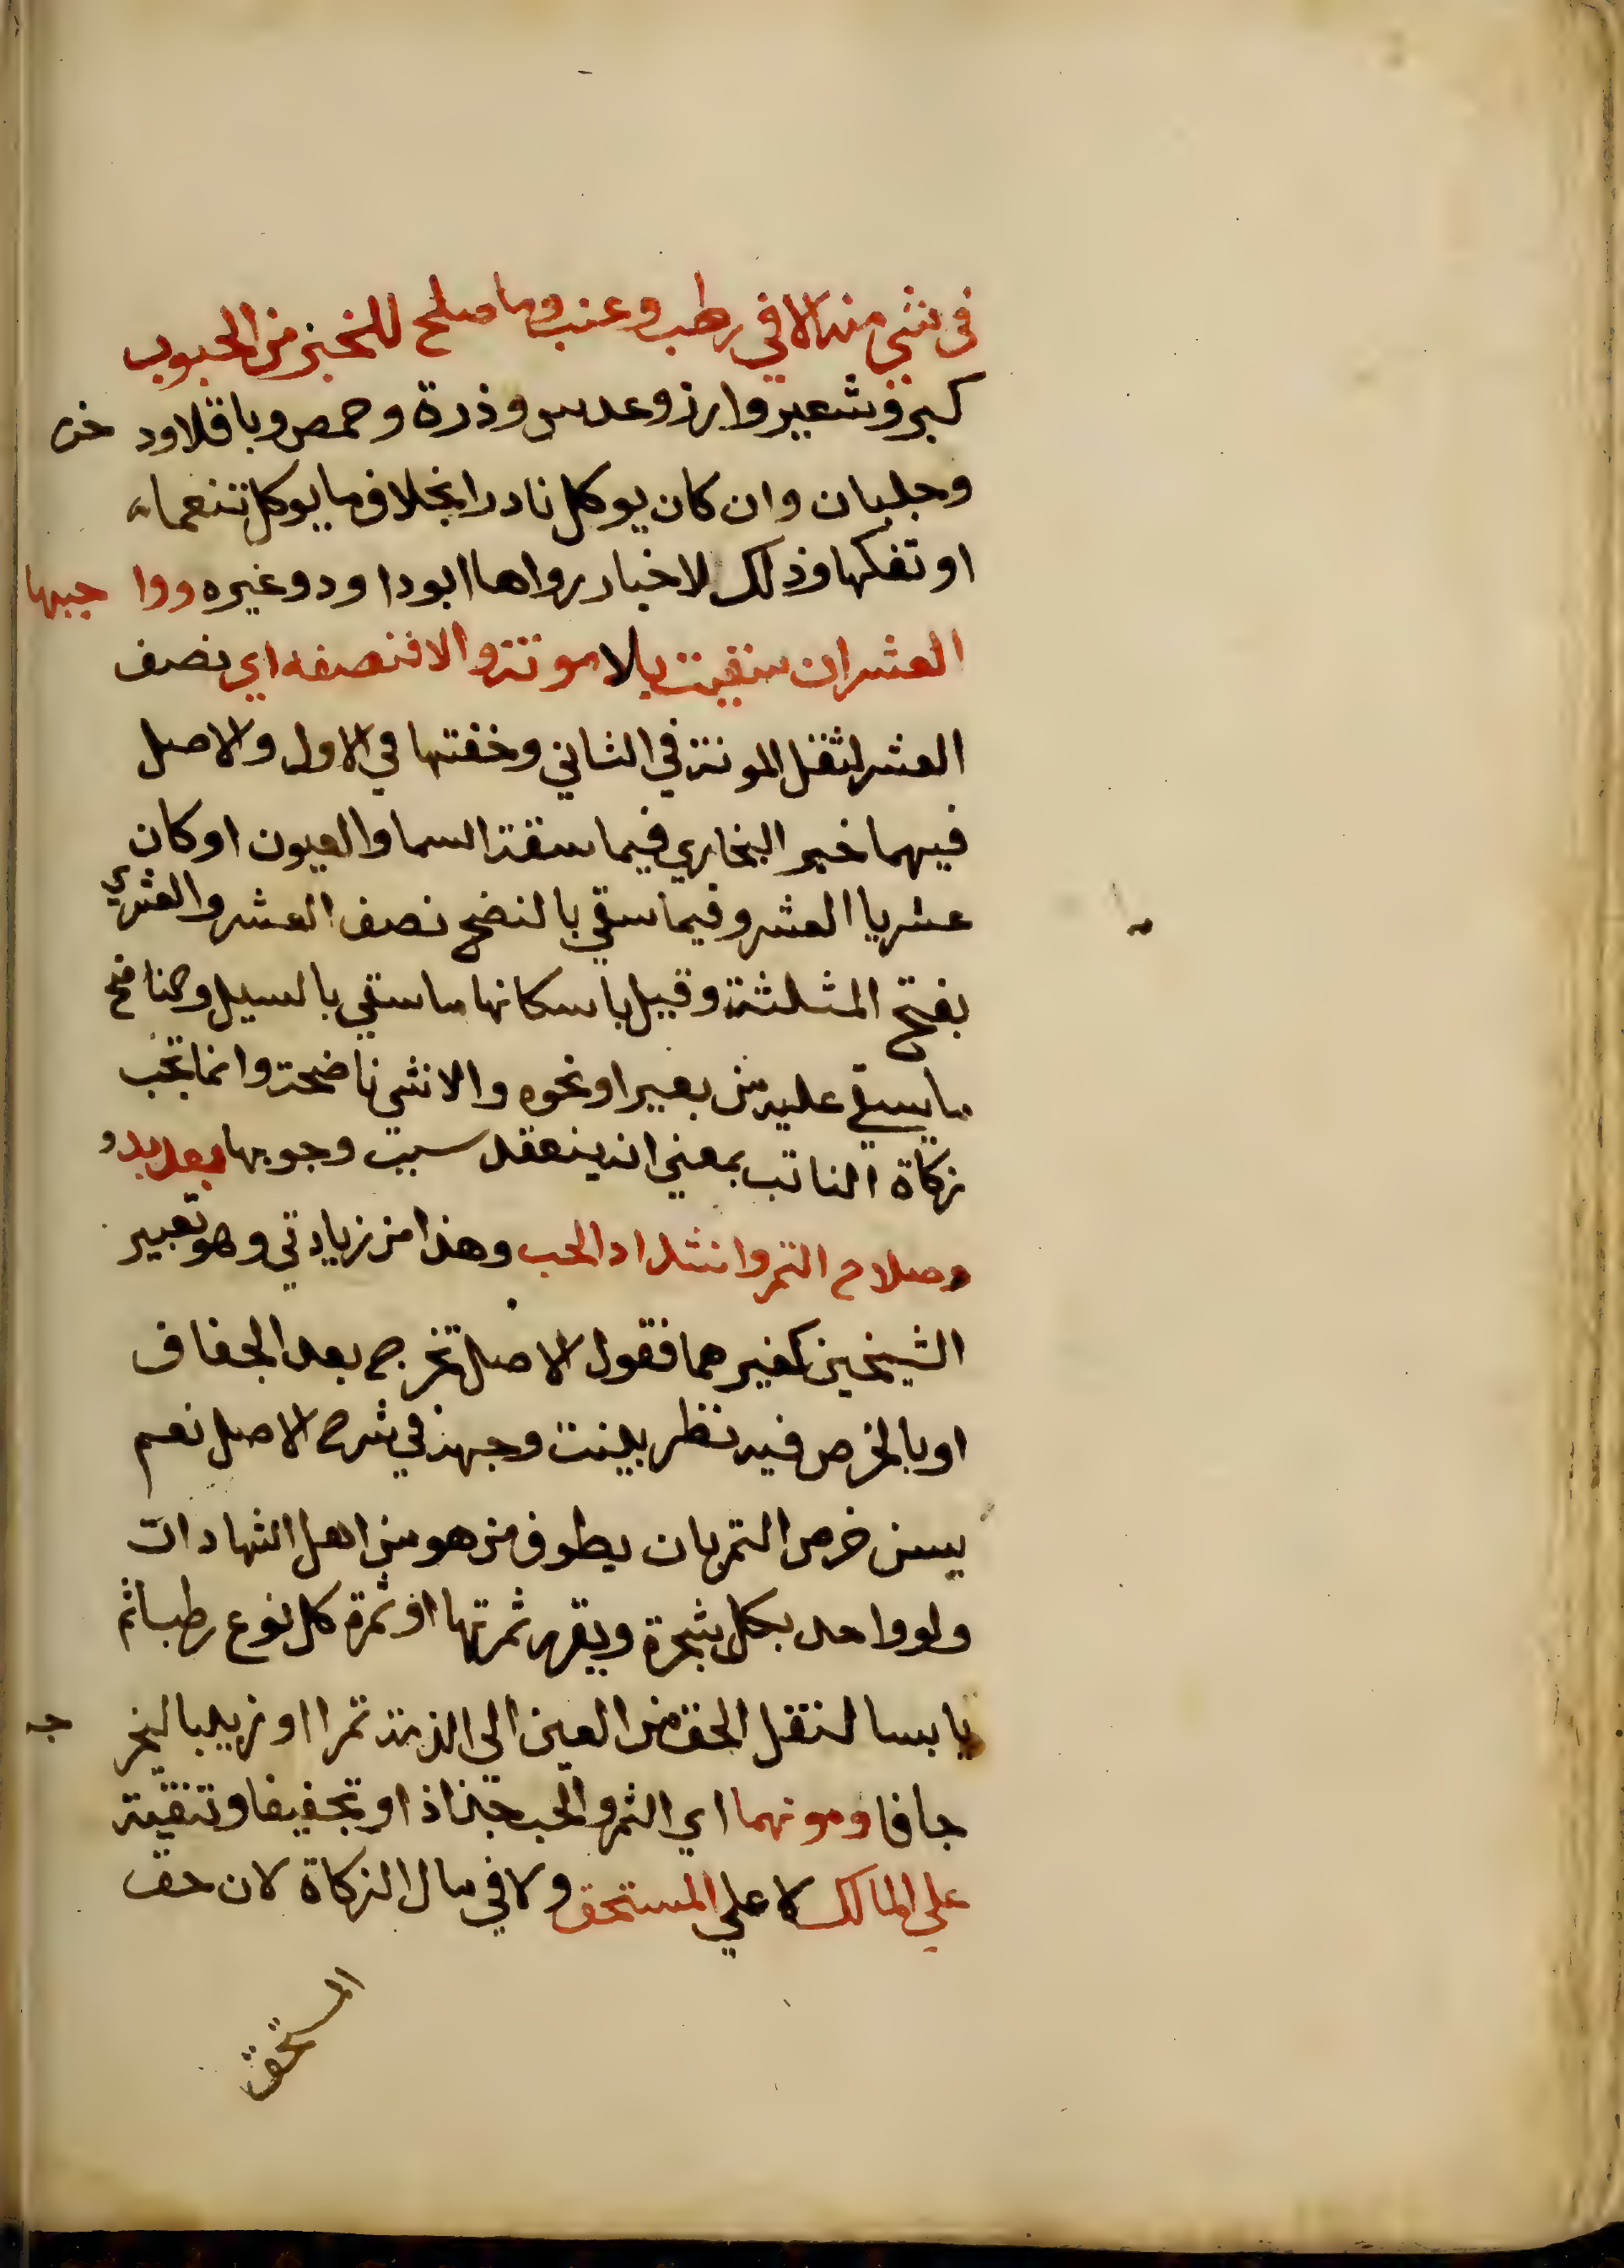 في شي منه الا في رطب وعنب وما صلح للخبز من الحبوب
كبر وشعير وارز وعدس وذرة وحمص وباقلا ودخن
وجلبان وان كان يوكل نادرا بخلاف ما يوكل تنعما
او تفكها وذلك لاخبار رواها ابوداود وغيره وواجبها
العشر ان سقيت بلا مونة والا فنصفه اي نصف
العشر لثقل المونة في الثاني وخفتها في الاول والاصل
فيهما خبر البخاري فيما سقت السما والعيون او كان
عثريا العشر وفيما سقي بالنضح نصف العشر والعثري
بفتح المثلثة وقيل باسكانها ما سقي بالسيل والناضح
ما يسقى عليه من بعير او نحوه والانثي ناضحة وانما تجب
زكاة النابت بمعني انه ينعقد سبب وجوبها بعد بدو
صلاح التمر واشتداد الحب وهذا من زيادتي وهو تعبير
الشيخين كغيرهما فقول الاصل تخرج بعد الجفاف
او بالخرص فيه نظر بينت وجهه في شرح الاصل نعم
يسن خرص التمر بان يطوف من هو من اهل الشهادات
ولو واحد بكل شجرة ويقدر ثمرتها او ثمرة كل نوع رطبا ثم
يابسا لنقل الحق من العين الي الذمة تمرا او زبيبا ليخرجه
جافا ومونهما اي الثمر والحب جذاذا وتجفيفا وتنقية
علي المالك لا علي المستحق ولا في مال الزكاة لان حق
المستحق